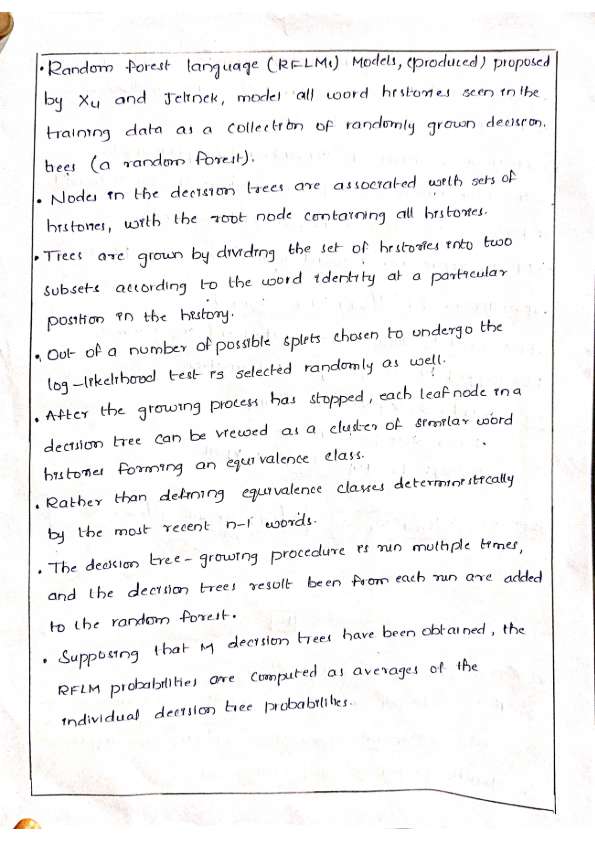 • Random forest language (RFLMs) Models, (produced) proposed
by Xu and Jelinek, model all word histories seen in the
training data as a collection of randomly grown decision.
trees (a random forest).
• Nodes in the decision trees are associated with sets of
histories, with the root node containing all histories.
• Trees are grown by dividing the set of histories into two
subsets according to the word identity at a particular
position in the history.
• Out of a number of possible splits chosen to undergo the
log-likelihood test is selected randomly as well.
• After the growing process has stopped, each leaf node in a
decision tree can be viewed as a cluster of similar word
histories forming an equivalence class.
• Rather than defining equivalence classes deterministically
by the most recent n-1 words.
• The decision tree-growing procedure is run multiple times,
and the decision trees result been from each run are added
to the random forest.
• Supposing that M decision trees have been obtained, the
RFLM probabilities are computed as averages of the
individual decision tree probabilities.